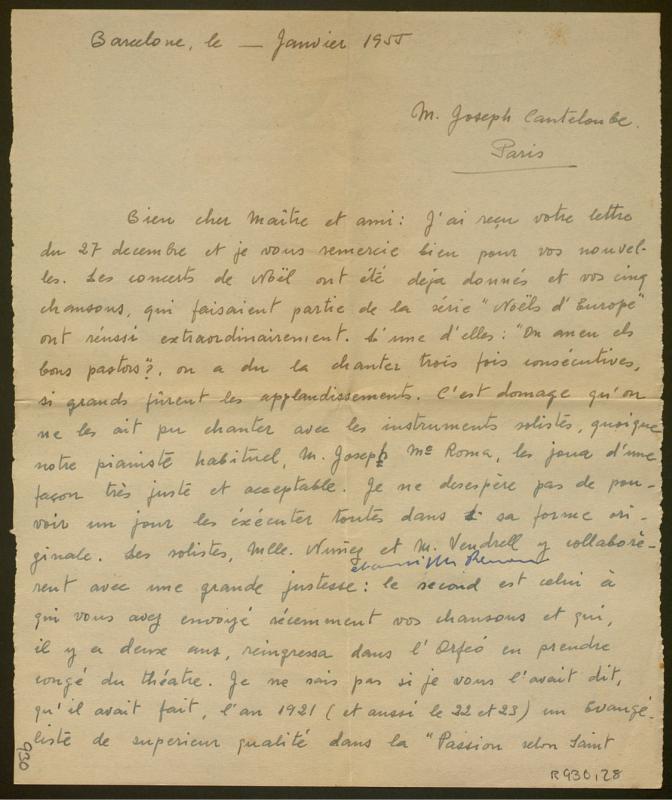 Barcelone, le — Janvier 1955
M. Joseph Canteloube.
Paris
Bien cher Maître et ami: J'ai reçu votre lettre
du 27 decembre et je vous remercie bien pour vos nouvel-
les. Les concerts de Noël ont été déja donnés et vos cinq
chansons, qui faisaient partie de la série "Noëls d'Europe"
ont réussi extraordinairement. L'une d'elles: "On aneu els
bons pastors?, on a du la chanter trois fois consécutives,
si grands fûrent les applaudissements. C'est domage qu'on
ne les ait pu chanter avec les instruments solistes, quoique
notre pianiste habituel, M. Joseph Mª Roma, les joua d'une
façon très juste et acceptable. Je ne desespère pas de pou-
voir un jour les éxécuter toutes dans sa forme ori-
ginale. Les solistes, Mlle. et M. Vendrell y collaborè-
rent avec une grande justesse: le second est celui à
qui vous avez envoyé récemment vos chansons et qui,
il y a deux ans, reingressa dans l'Orfeó en prendre
congé du théatre. Je ne sais pas si je vous l'avait dit,
qu'il avait fait, l'an 1921 (et aussi le 22 et 23) un Evangé-
liste de superieur qualité dans la "Passion selon Saint
930
R930,28